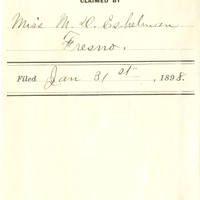 CLAIMED BY
Miss M. C. Eshelman
Fresno.
Filed Jan 31st, 1898.